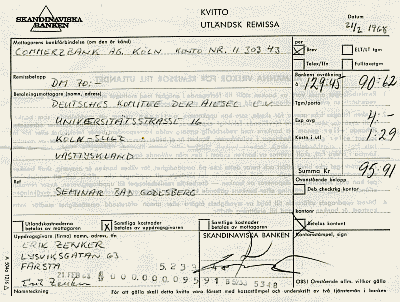 SKANDINAVISKA
BANKEN
KVITTO
UTLÄNDSK REMISSA
Datum
21/2 1968
Mottagarens bankförbindelse (om den är känd)
COMMERZBANK AG, KÖLN KONTO NR. 11 303 43
per
Brev
ELT/LT tgm
Telex/tln
Fulltaxetgm
Remissbelopp
DM 70:-
Bankens avräkning
à 129:45
90-62
Betalningsmottagare (namn, adress)
DEUTSCHES KOMITEE DER AIESEC E.V.
UNIVERSITÄTSSTRASSE 16
KÖLN-SÜLZ
VÄSTTYSKLAND
Tgm/porto
Exp avg
4:-
Kostn i utl
1:29
Summa Kr
95.91
Ref
SEMINAR BAD GODESBERG
Ovanstående belopp
Deb checkräkng
kontor
Utlandskostnaderna betalas av mottagaren
X Samtliga kostnader betalas av uppdragsgivaren
Samtliga kostnader betalas av mottagaren
Betalas kontant
Uppdragsgivare (firma) namn, adress, tfn
ERIK ZENKER
LYSVIKSGATAN 63
FARSTA
SKANDINAVISKA BANKEN
Kontorsstämpel, sign
21 FEB 68
Erik Zenker
OBS! Ovanstående enl. villkor gälla
Namnteckning
För att gälla skall detta kvitto vara försett med kassastämpel och underskrift av två tjänstemän i banken